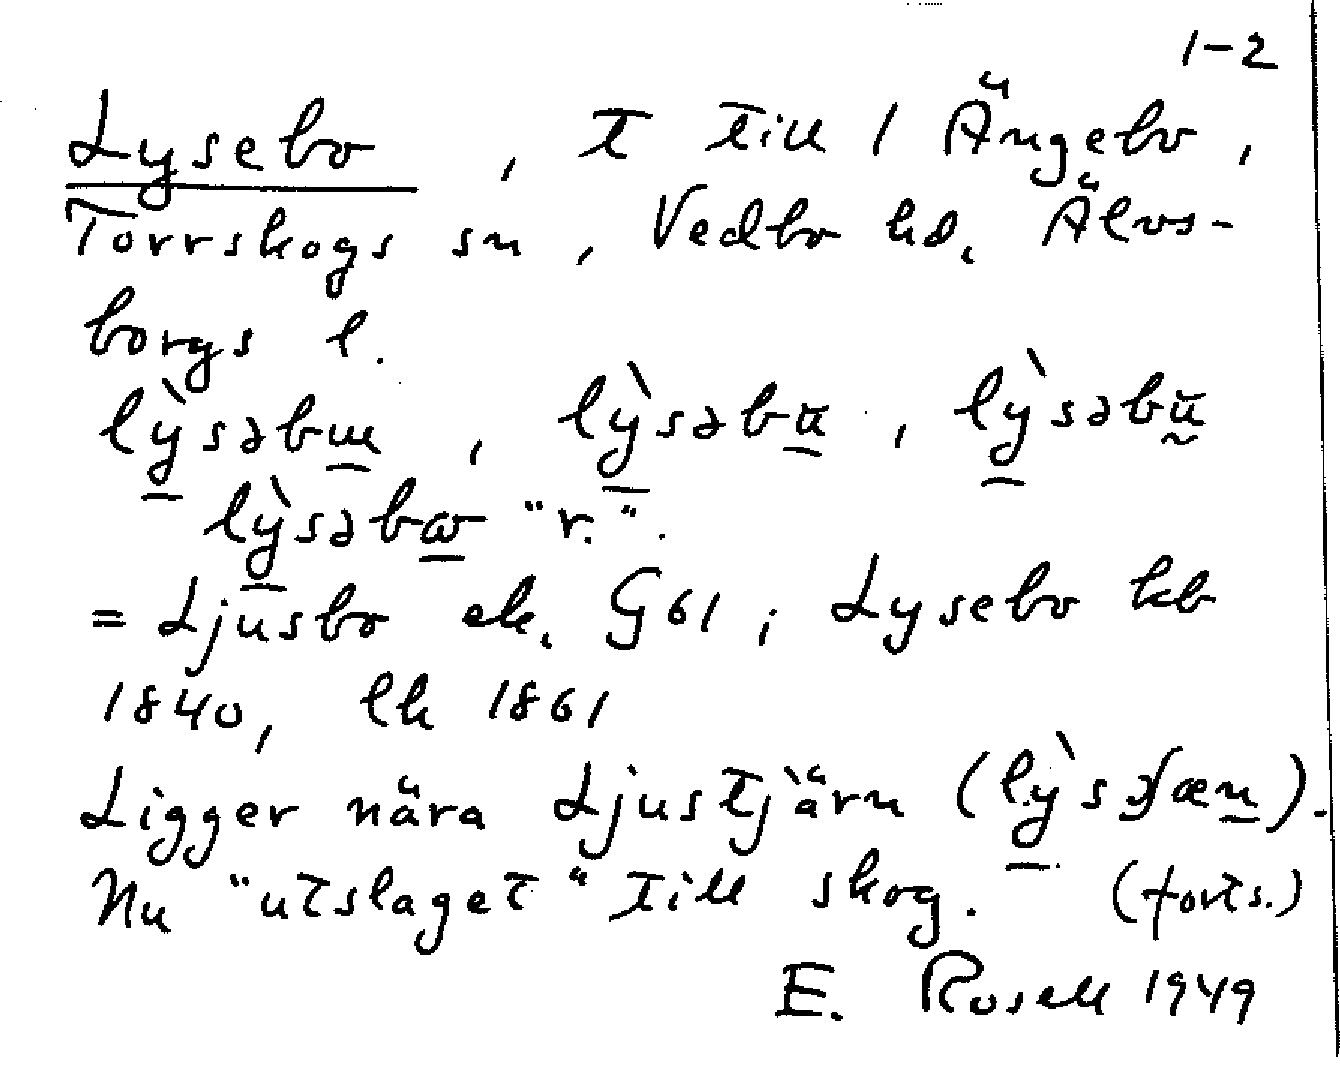 1-2
Lysebo, t till 1 Ängebo,
Torrskogs sn, Vedbo hd, Älvs-
borgs l.
lỳsəbɯ, lỳsəbα, lỳsəbŭ
lỳsəbω "r.".
= Ljusbo ek. G61; Lysebo kb
1840, lk 1861
Ligger nära Ljustjärn (lỳsʃæn).
Nu "utslaget" till skog. (forts.)
E. Rosell 1949